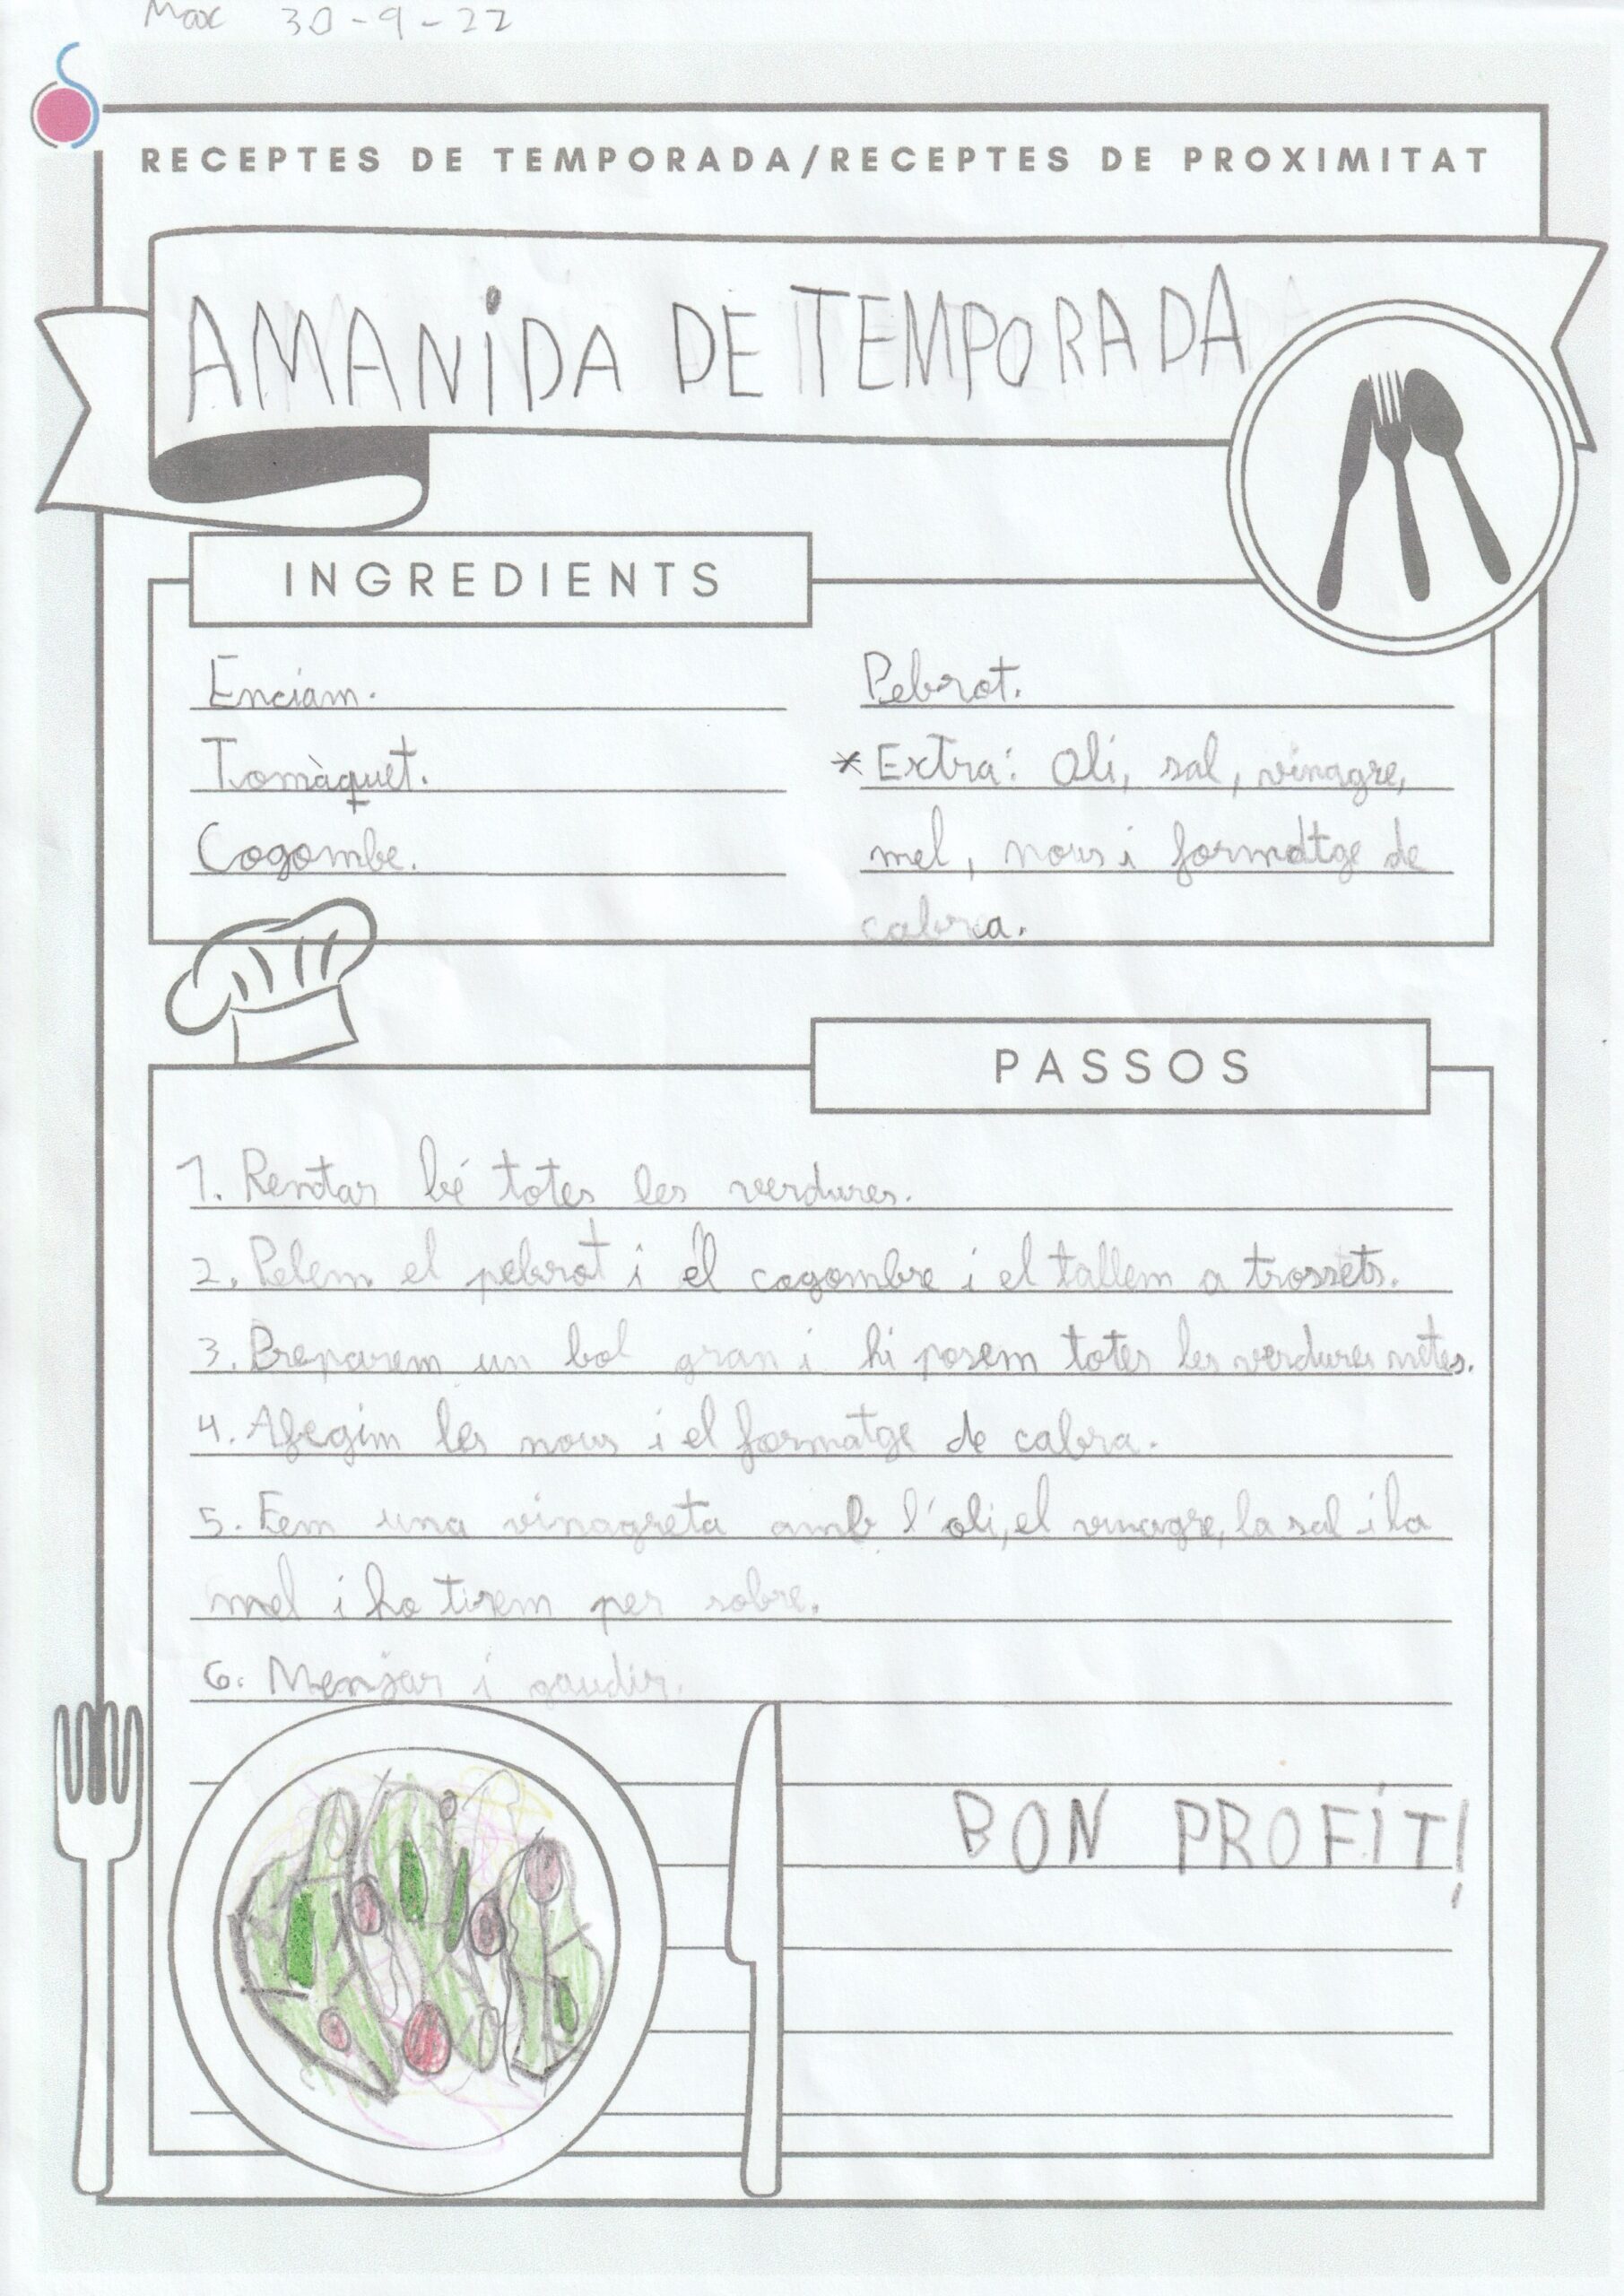 Max 30-9-22
RECEPTES DE TEMPORADA/RECEPTES DE PROXIMITAT
AMANiDA DE TEMPORADA
INGREDIENTS
Enciam.
Tomàquet.
Cogombe.
Pebrot.
*Extra: Oli, sal, vinagre,
mel, nous i formatge de
cabra.
PASSOS
1. Rentar bé totes les verdures.
2. Pelem el pebrot i el cogombre i el tallem a trossets.
3. Preparem un bol gran i hi posem totes les verdures netes.
4. Afegim les nous i el formatge de cabra.
5. Fem una vinagreta amb l'oli, el vinagre, la sal i la
mel i ho tirem per sobre.
6. Menjar i gaudir.
BON PROFiT!